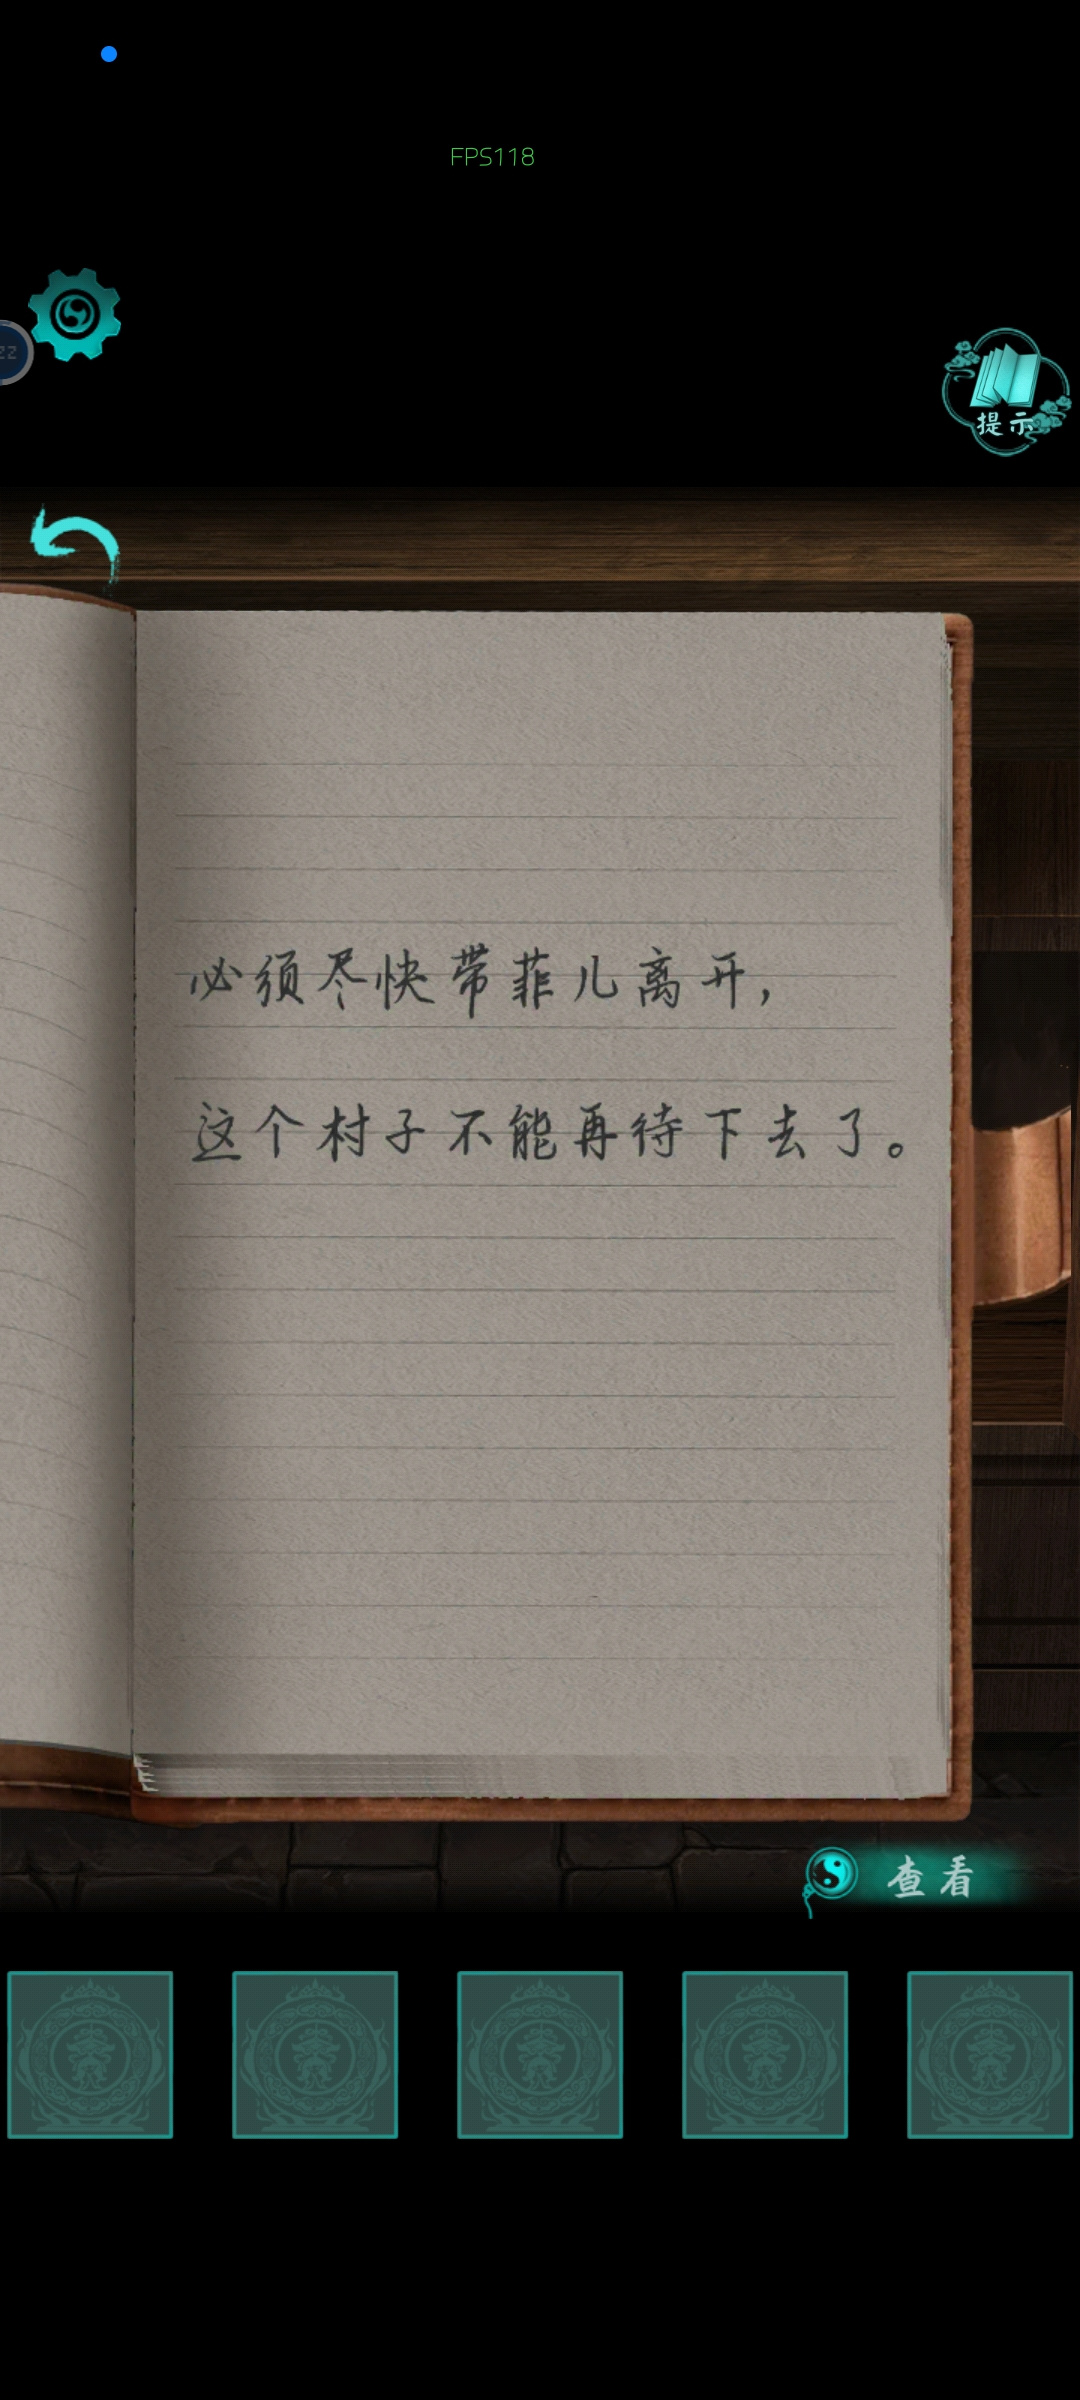 FPS118
提示
必须尽快带菲儿离开，
这个村子不能再待下去了。
查看